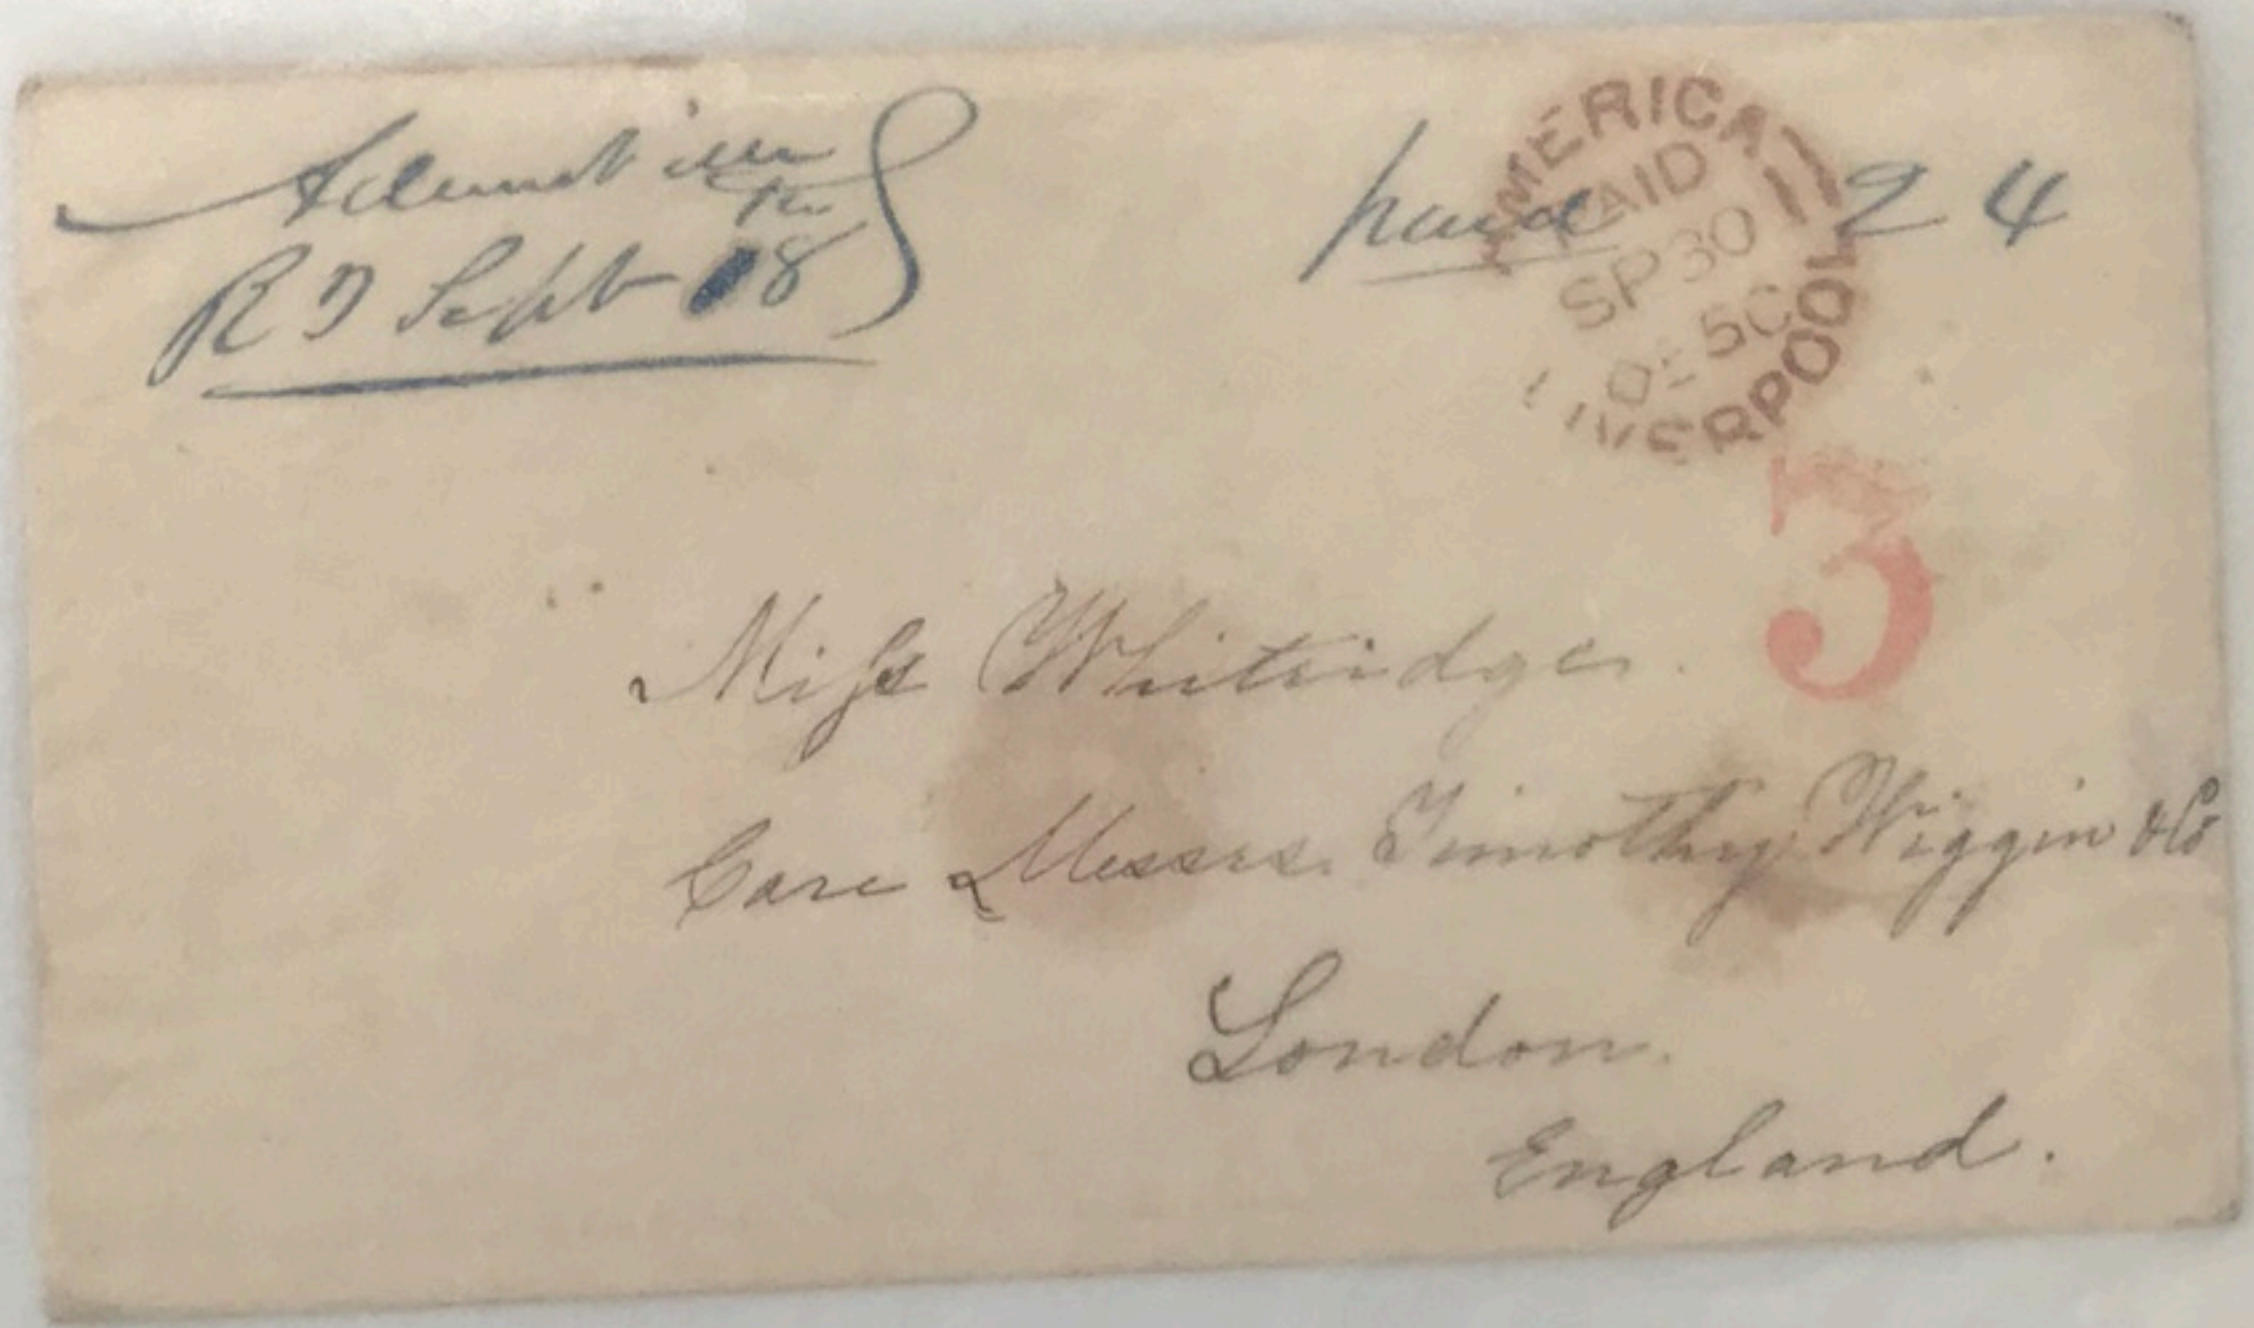 R I Sept 18
paid 24
AMERICA
PAID
SP 30
50
LIVERPOOL
3
Miss Whitridge.
Care Messrs. Timothy Wiggin & Co
London.
England.